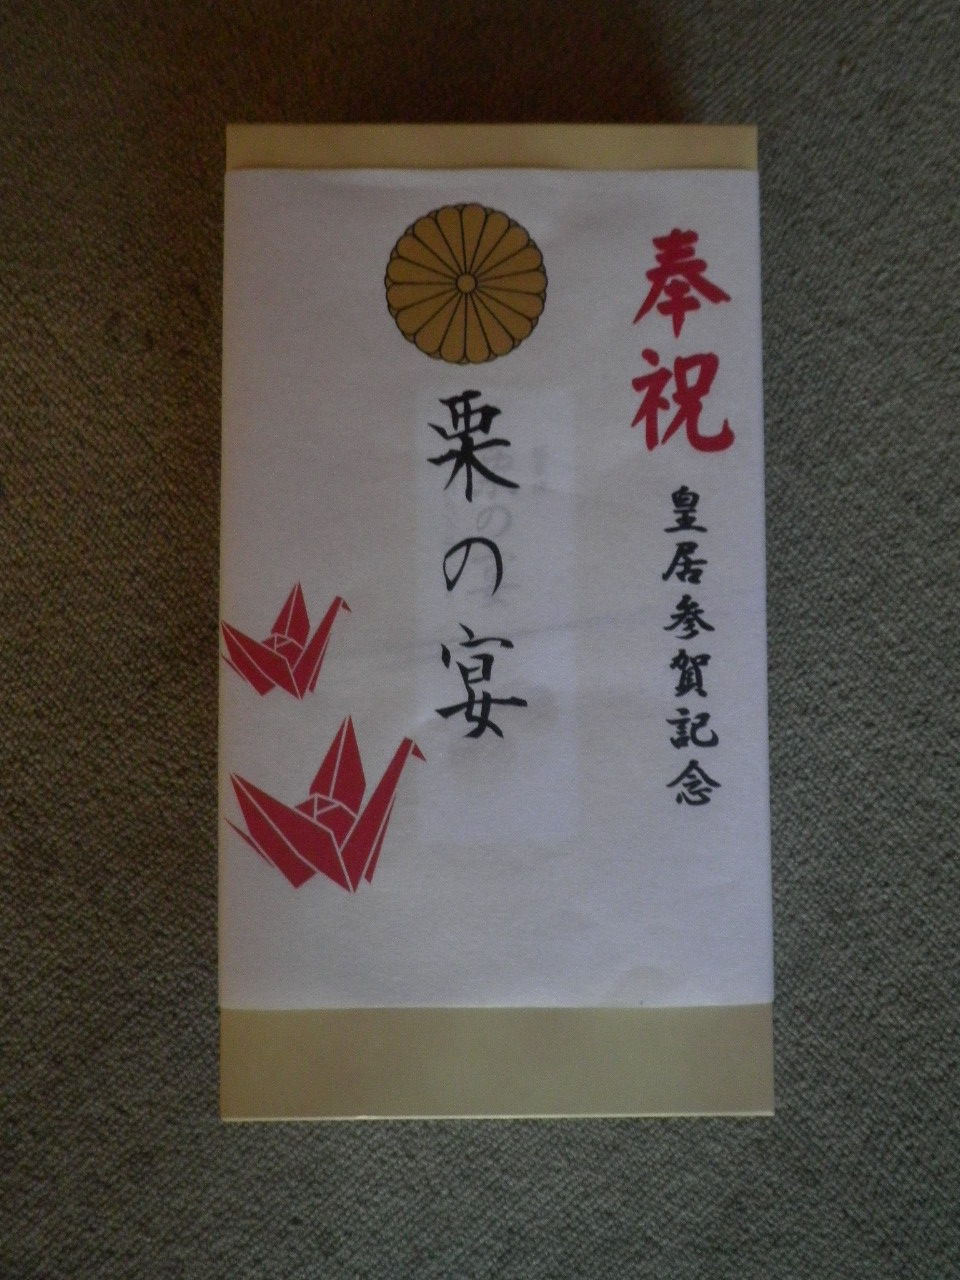 奉祝
皇居参賀記念
栗の宴